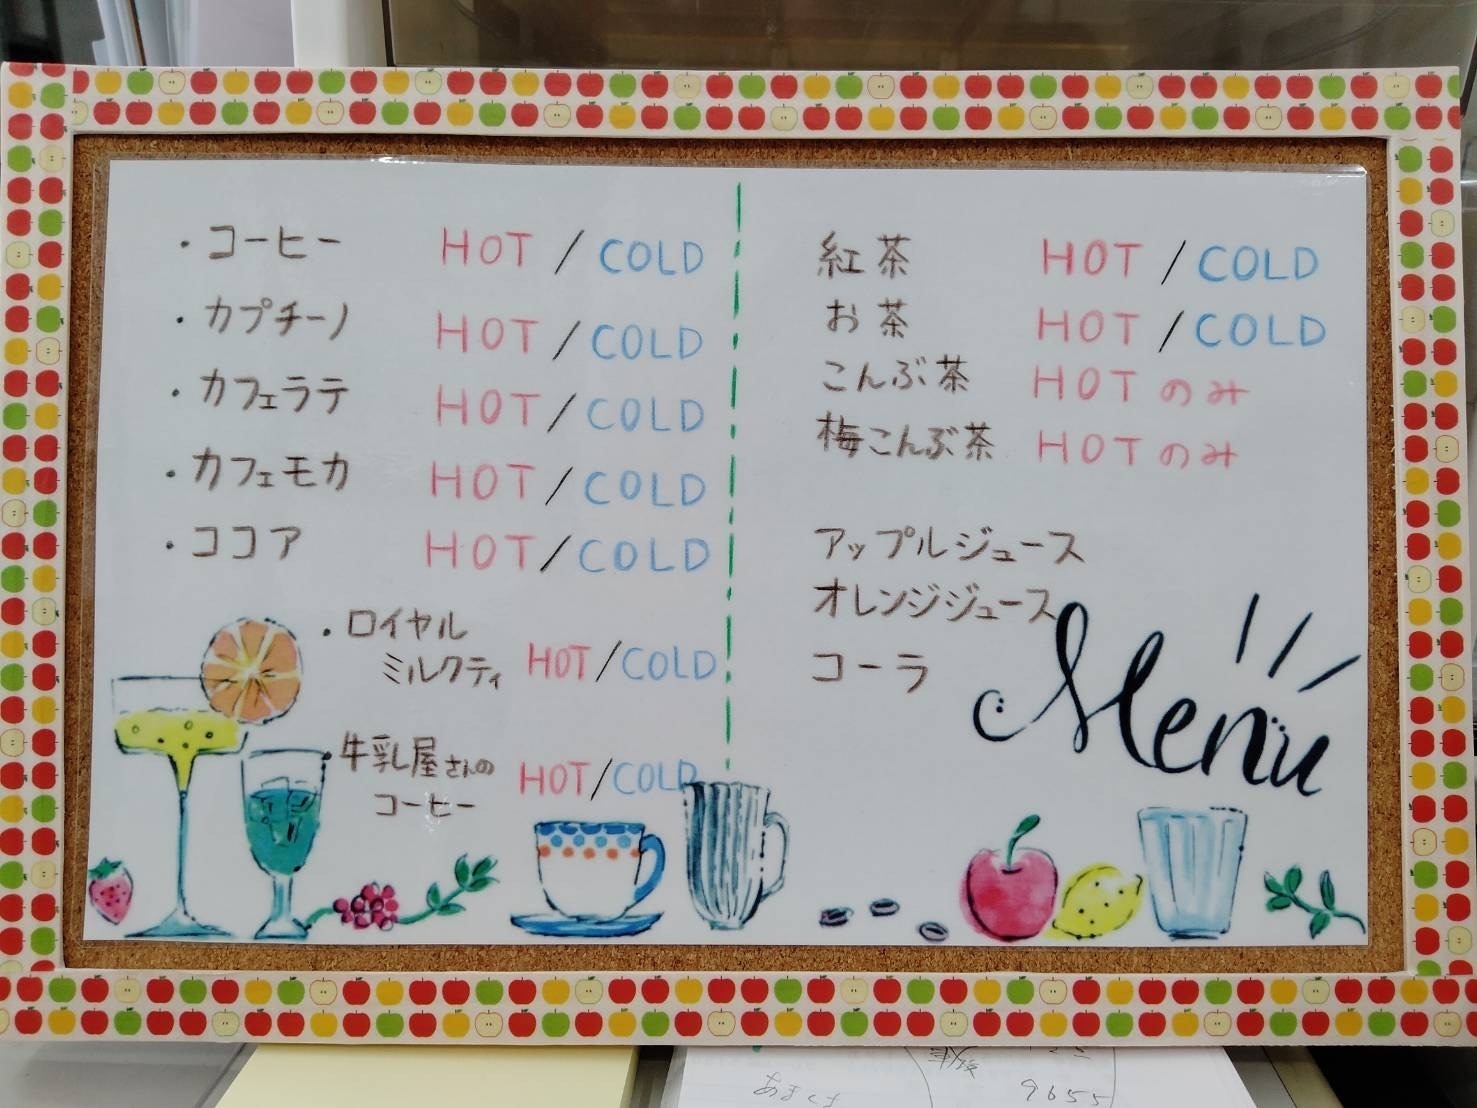 ・コーヒー HOT / COLD
・カプチーノ HOT / COLD
・カフェラテ HOT / COLD
・カフェモカ HOT / COLD
・ココア HOT / COLD
・ロイヤル
ミルクティ HOT / COLD
・牛乳屋さんの
コーヒー HOT / COLD
紅茶 HOT / COLD
お茶 HOT / COLD
こんぶ茶 HOT のみ
梅こんぶ茶 HOT のみ
アップルジュース
オレンジジュース
コーラ
Menu
9655